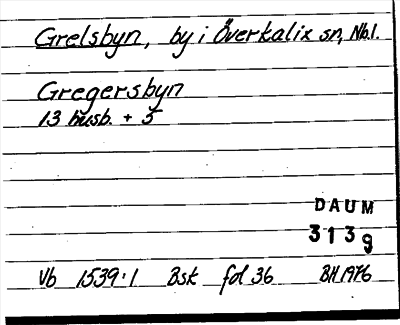 Grelsbyn, by i Överkalix sn, Nb.l.
Gregersbyn
13 busb. + 5
DAUM
3139
Vb 1539:1 Bsk fol 36 BH 1976